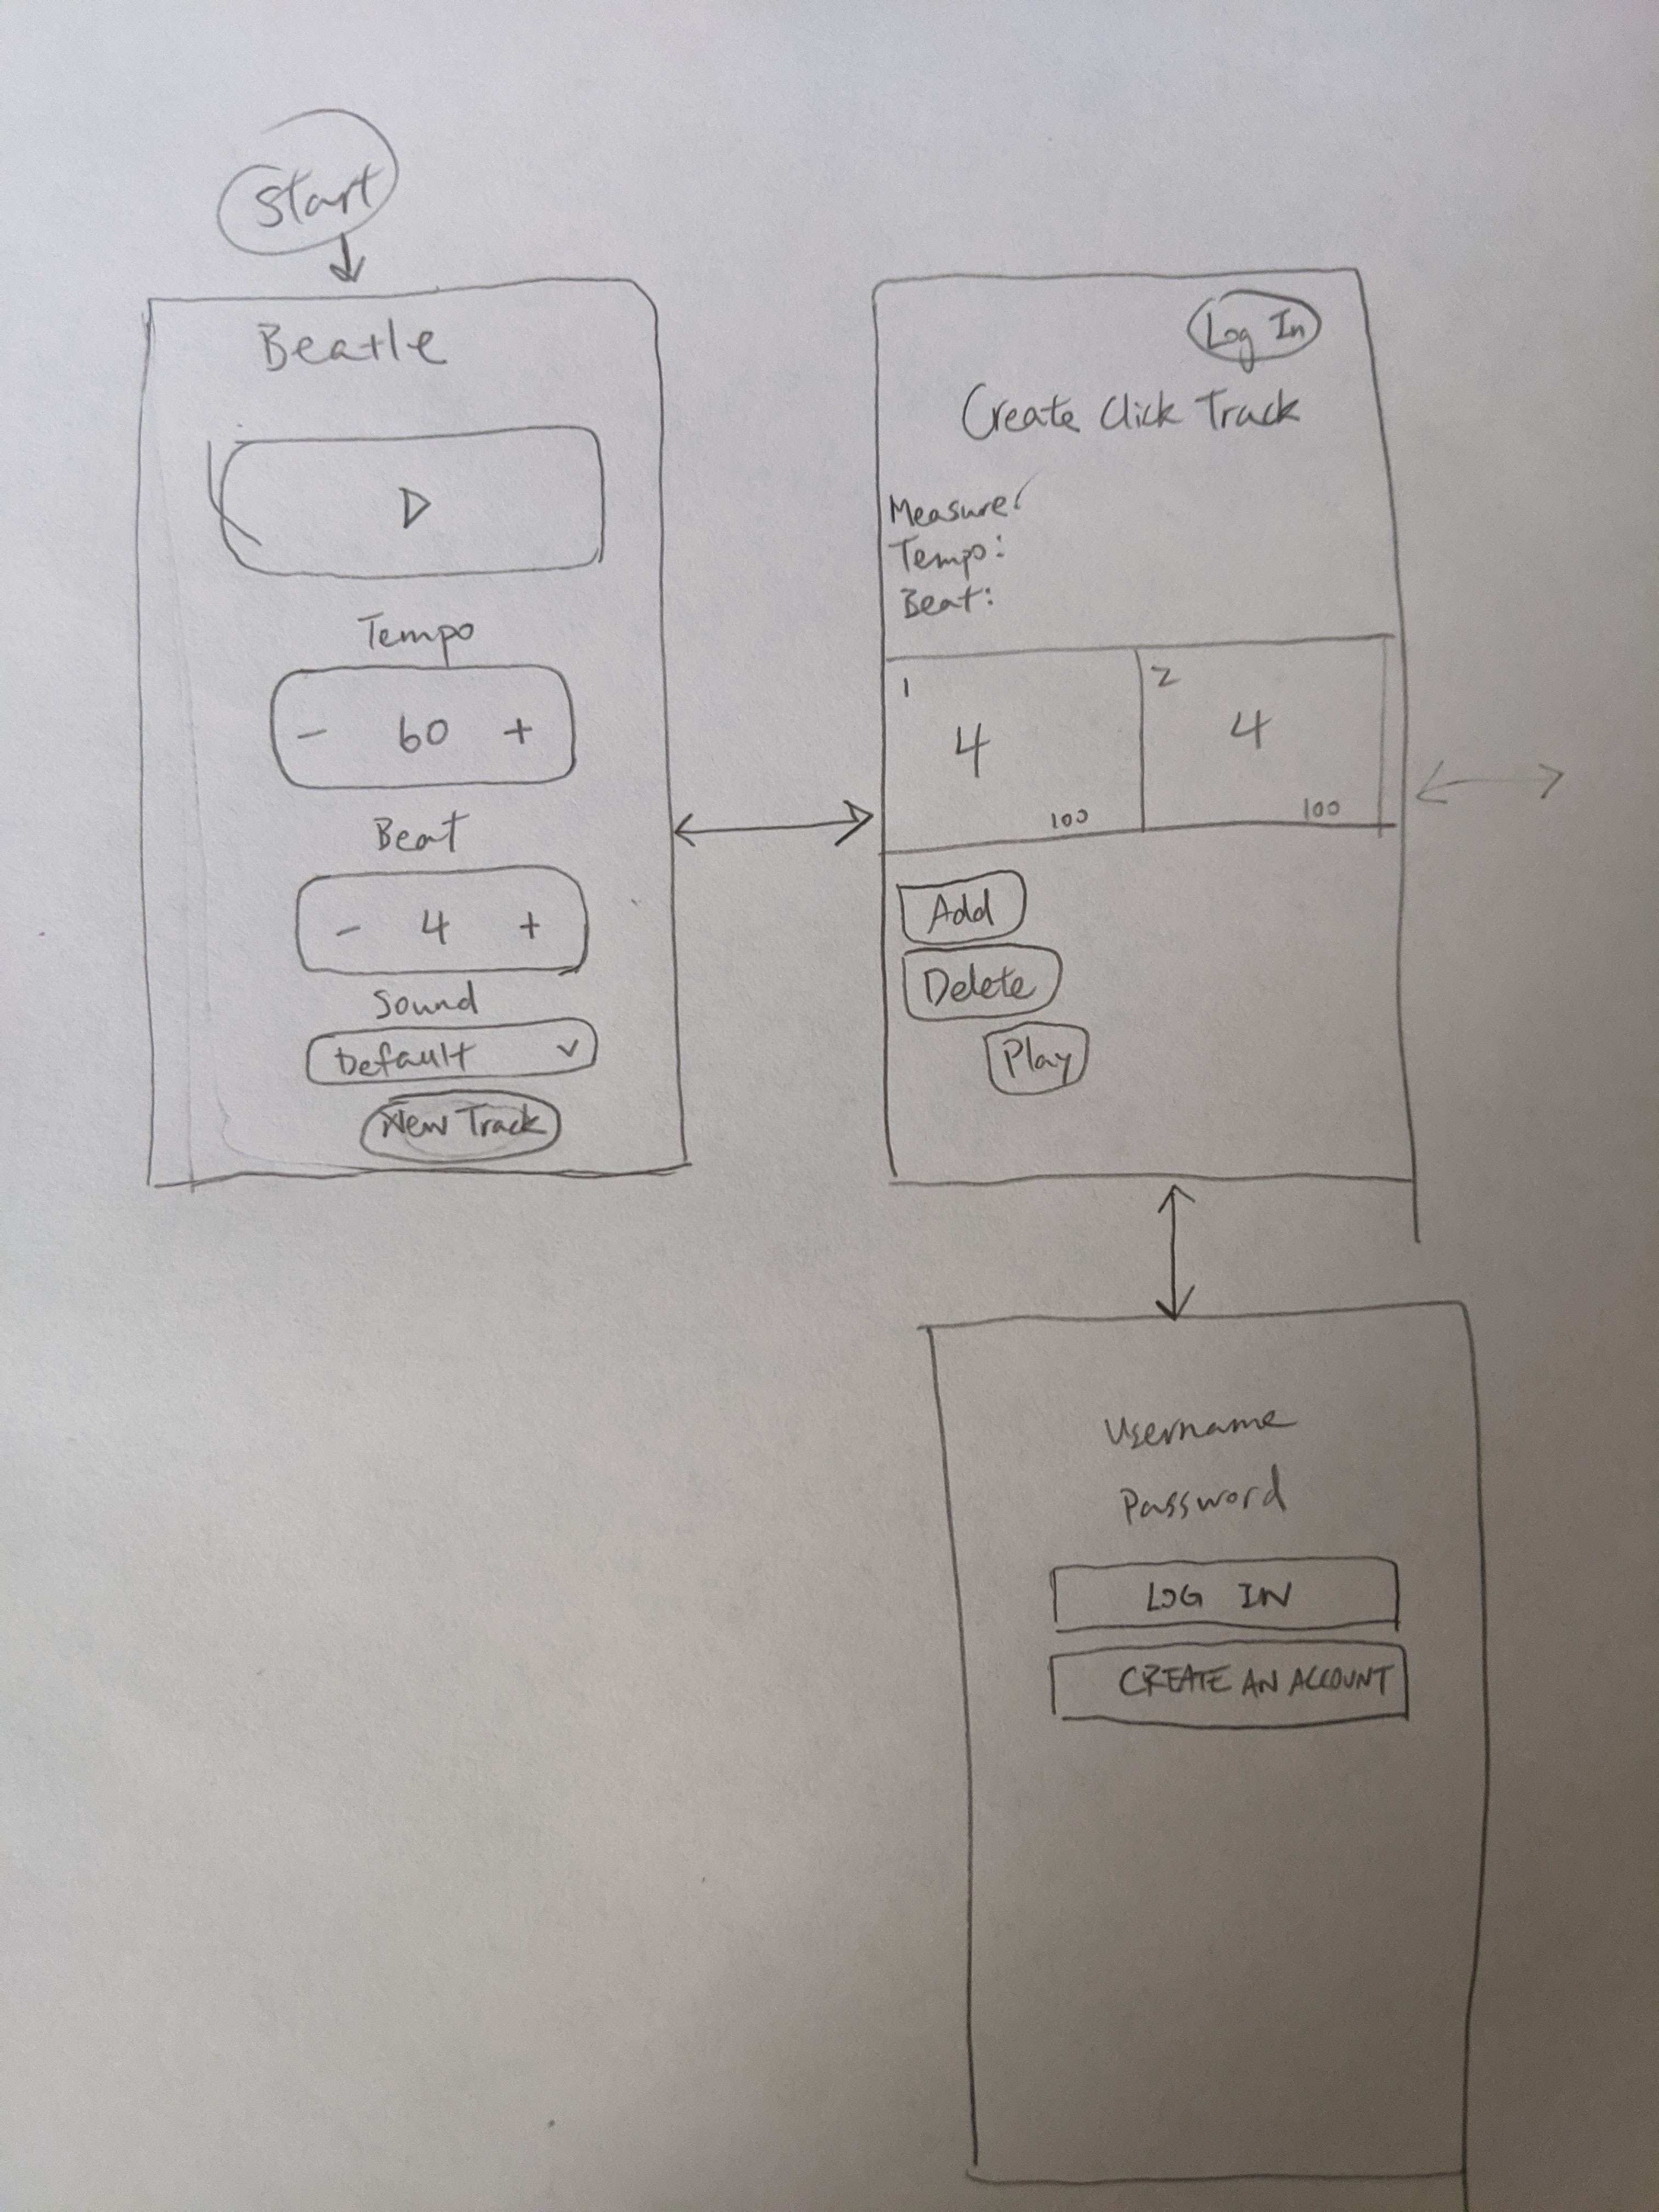 Start
Beatle
Tempo
- 60 +
Beat
- 4 +
Sound
Default
New Track
Log In
Create Click Track
Measure:
Tempo:
Beat:
1
4
100
2
4
100
Add
Delete
Play
Username
Password
LOG IN
CREATE AN ACCOUNT